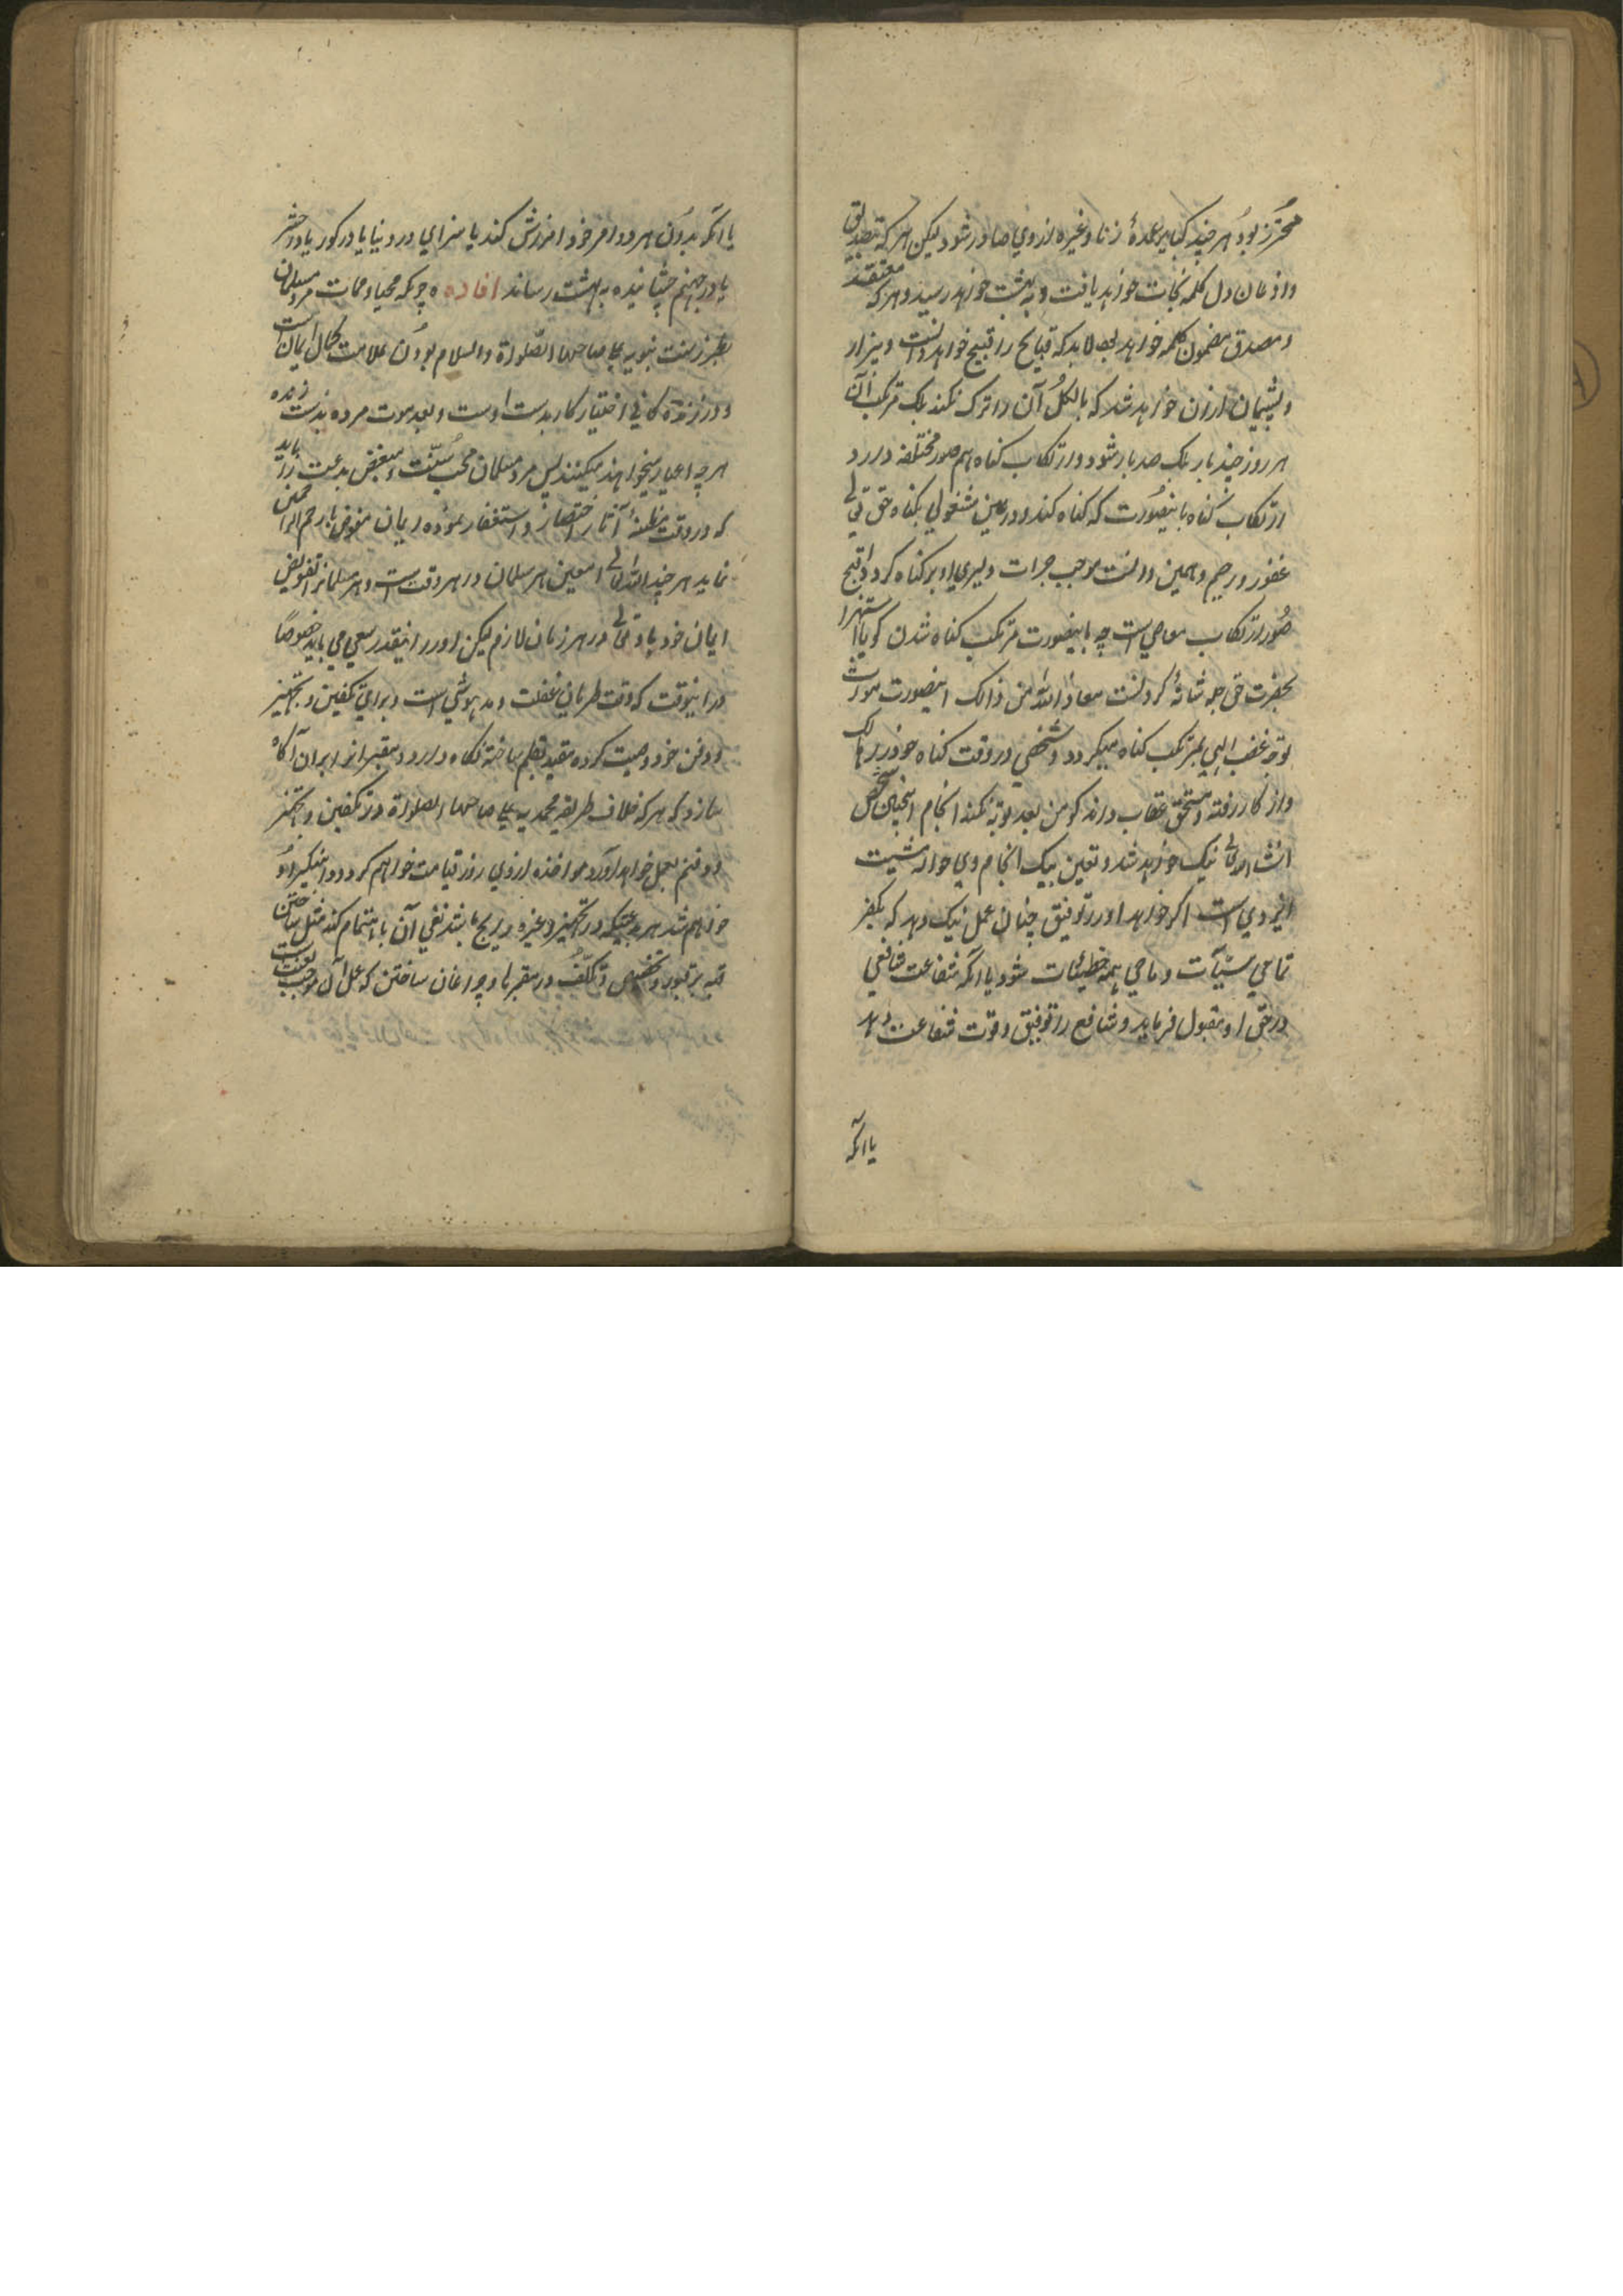 محترز بود هر چند کبایر عمدهٔ زنا و غیره از وی صادر شود لیکن هر که بتصدیق
و اذعان دل کلمه نجات خواهد یافت و به بهشت خواهد رسید و هر که معتقد
و مصدق مضمون کلمه خواهد بود لابد که قبایح را قبیح خواهد دانست و بیزار
و پشیمان ازان خواهد شد که بالکل آن را ترک نکند بلک مرتکب آن
هر روز چند بار بلک صد بار شود و ارتکاب کناه هم صور مختلفه دارد
ارتکاب کناه باینصورت که کناه کند و در عین مشغولی بکناه حق تعالی
غفور و رحیم و همین دانست موجب جرات و دلیری او بر کناه کردد اقبح
صور ارتکاب معاصی است چه باینصورت مرتکب کناه شدن کویا استهزا
بحضرت حق جل شانهٔ کردنست معاذ الله من ذالک اینصورت مورث
توجه غضب الهی بمرتکب کناه میکردد و شخصی در وقت کناه خود را هالک
و از کار رفته و مستحق عقاب داند کو من بعد توبه نکند انجام اینچنین شخص
انشاء الله تعالی نیک خواهد شد و تعین نیک انجام وی حواله مشیت
ایزدی است اکر خواهد او را توفیق چنان عمل نیک دهد که مکفر
تمامی سیآت و ماحی همه خطیئات شود یا آنکه شفاعت شافعی
در حق او مقبول فرماید و شافع را توفیق و قوت شفاعت دهد
یا آنکه
یا آنکه بدون هر دو امر خود امرزش کند یا سزای در دنیا یا در کور یا در حشر
یا در جهنم چشانیده به بهشت رساند افاده ه چونکه محیا و ممات مرد مسلمان
بطرز سنت نبویه علی صاحبها الصلوة والسلام بودن علامت کمال ایمان است
و در زنده کانی اختیار کار بدست اوست و بعد موت مرده بدست زنده
هر چه احیا میخواهند میکنند پس مرد مسلمان محب سنت و مبغض بدعت را باید
که در وقت مظنهٔ آثار احتضار و استغفار نموده ایمان مفوض بارحم الراحمین
نماید هر چند الله تعالی معین هر مسلمان در هر وقت است و هر مسلمانرا تفویض
ایمان خود باو تعالی در هر زمان لازم لیکن او را اینقدر سعی می باید خصوصًا
در اینوقت که وقت طریان غفلت و مدهوشی است و برای تکفین و تجهیز
و دفن خود وصیت کرده مقید بقلم ساخته نکاه دارد و مقبرانرا بران آکاه
سازد که هر که خلاف طریقه محمدیه علی صاحبها الصلوة در تکفین و تجهیز
و دفنم بعمل خواهد آورد مواخذه ازوی روز قیامت خواهم کرد و دامنکیر او
خواهم شد هر بدعتیکه در تجهیز و غیره رایج باشد نفی آن باهتمام کند مثل ساختن
قبه بر قبور و تخصیص و تکلف در مقبرها و چراغان ساختن که عمل آن موجب لعنت است